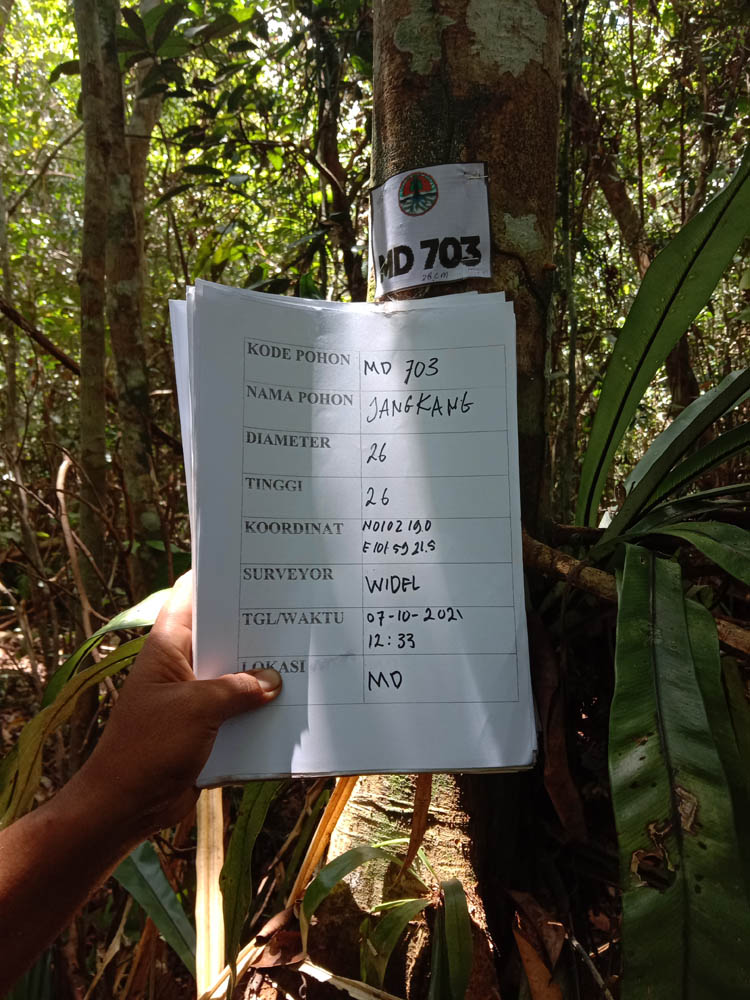 MD 703
26 cm
KODE POHON MD 703
NAMA POHON JANGKANG
DIAMETER 26
TINGGI 26
KOORDINAT N0102190
E101 59 21.5
SURVEYOR WIDEL
TGL/WAKTU 07-10-2021
12:33
LOKASI MD